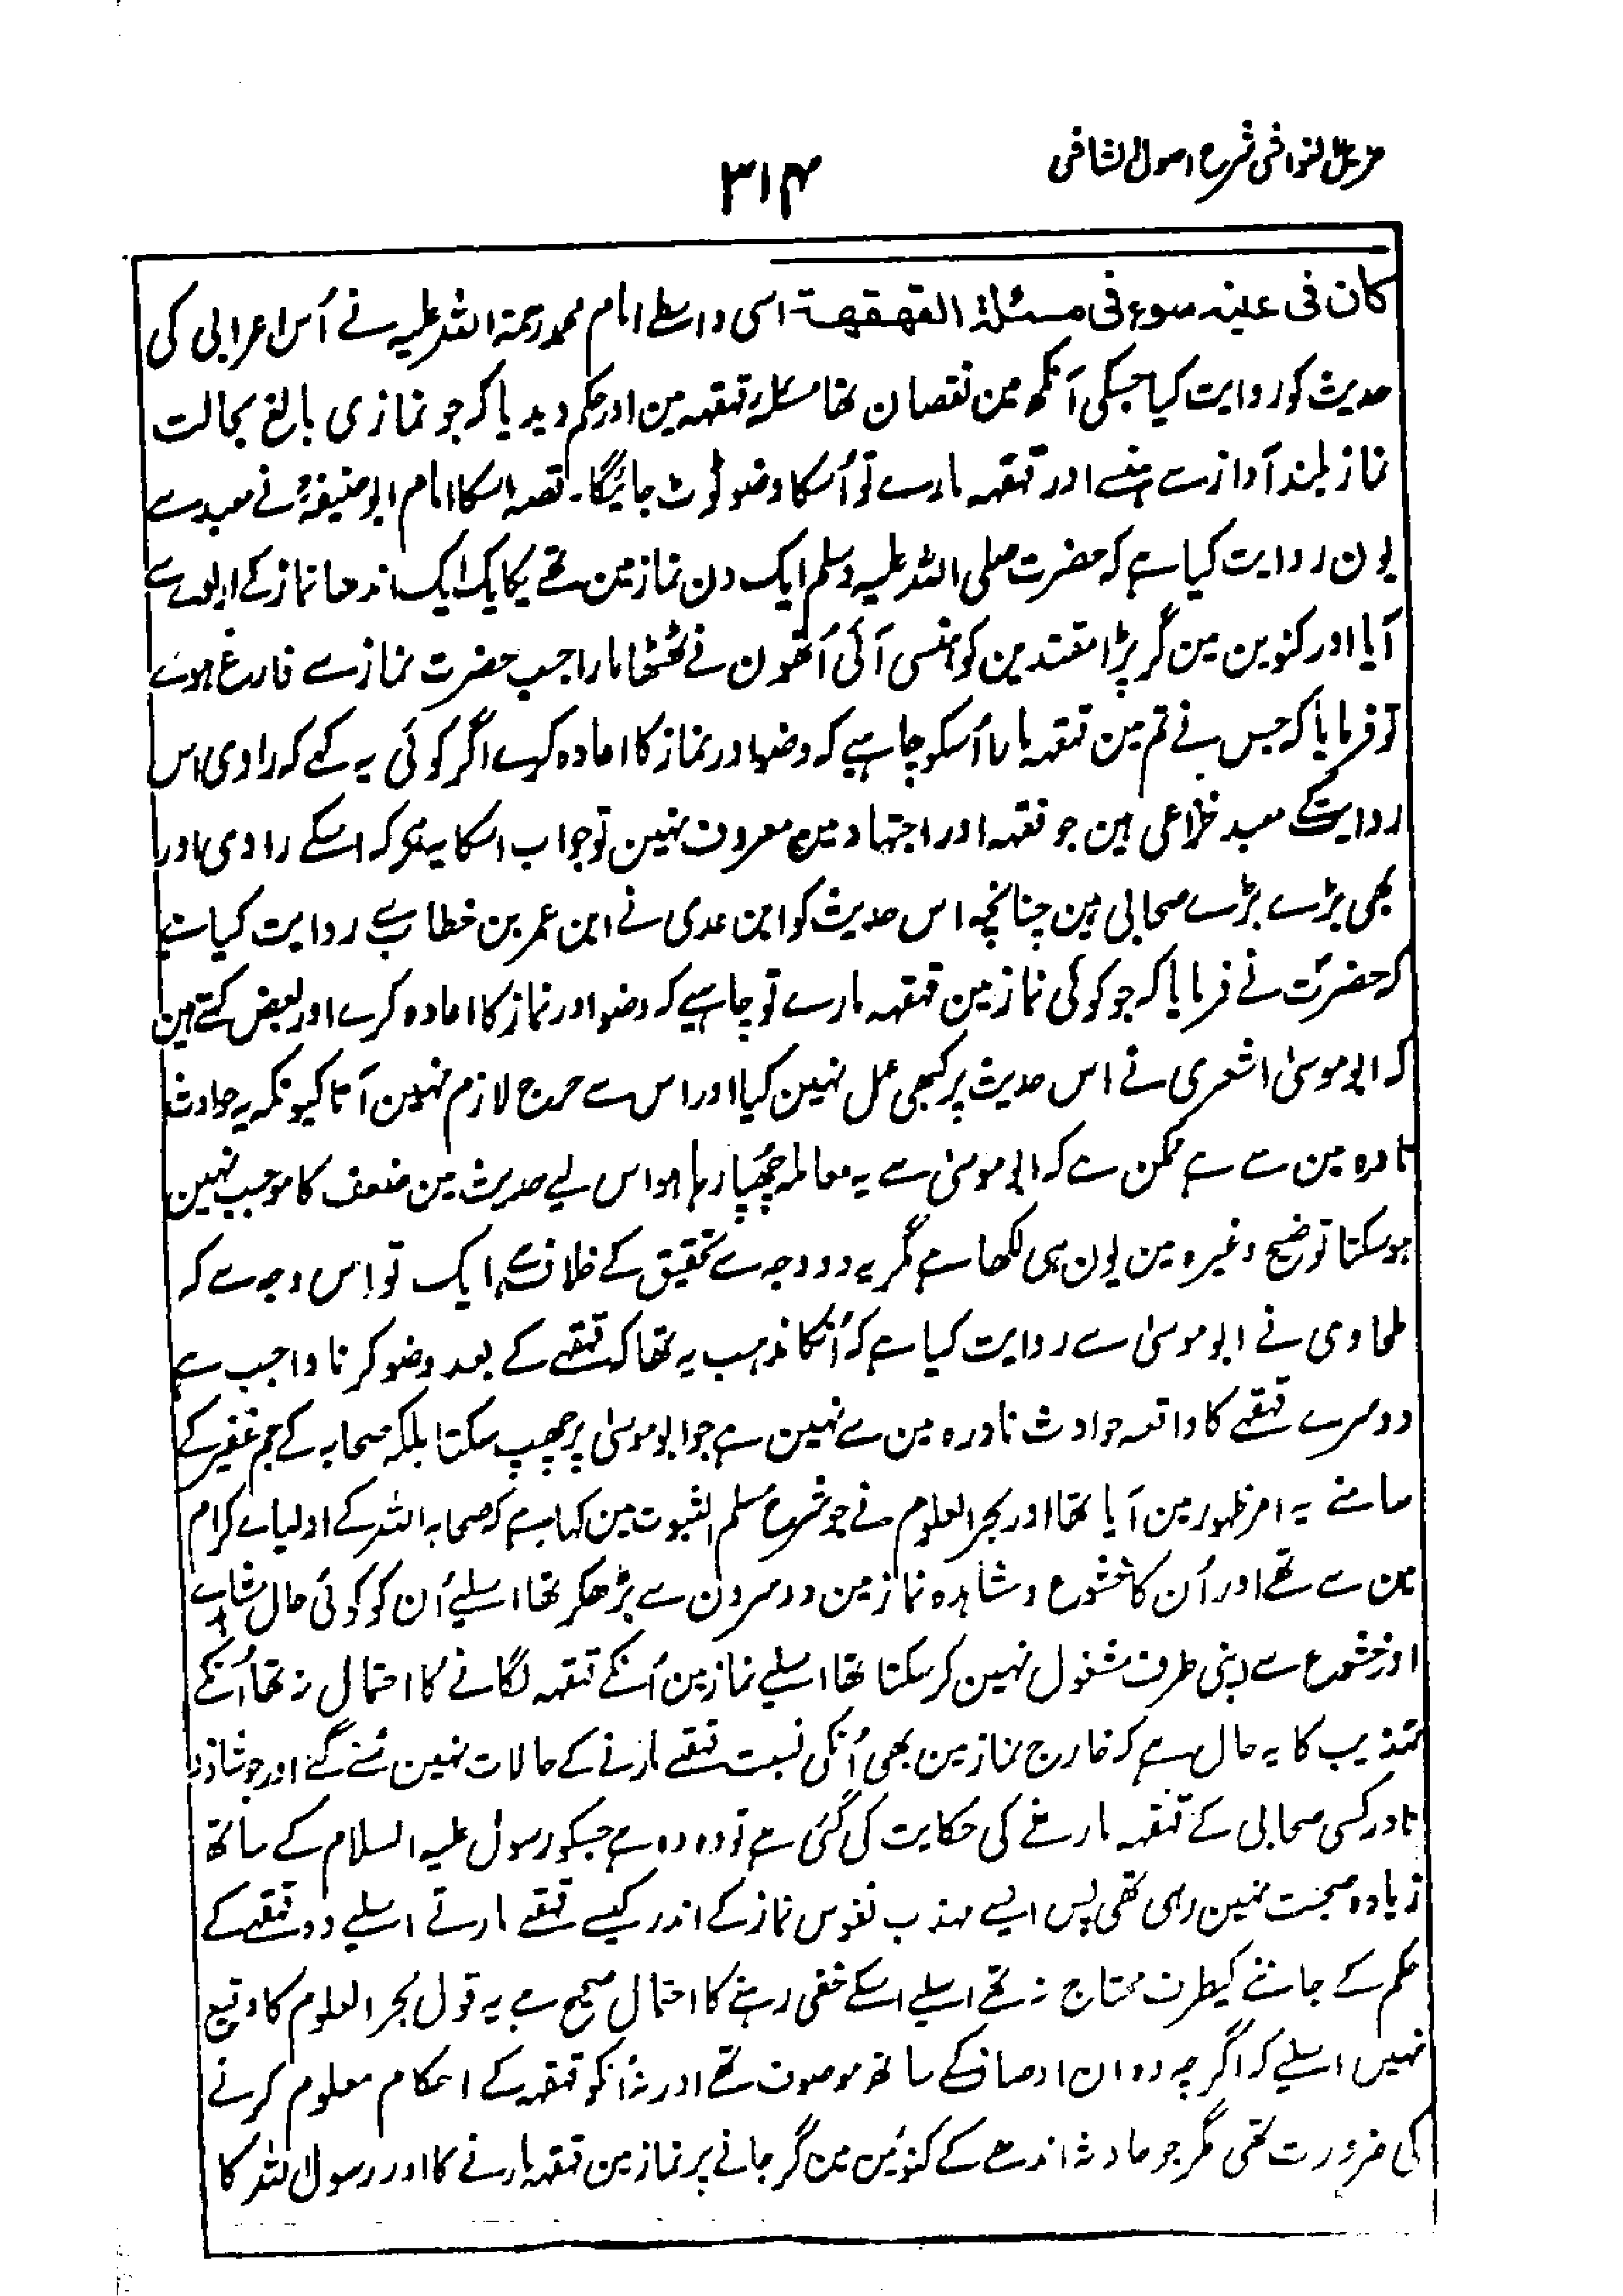 مزیل الغواشی شرح اصول الشاشی
۳۱۴
کان فی عینہ سوء فی مسئلۃ القہقہۃ اسی واسطے امام محمد رحمۃ اللہ علیہ نے اُس اعرابی کی
حدیث کو روایت کیا جسکی آنکھ مین نقصان تھا مسئلہ قہقہہ مین اور حکم دیدیا کہ جو نمازی بالغ بحالت
نماز بلند آواز سے ہنسے اور قہقہہ مارے تو اُسکا وضو ٹوٹ جائیگا۔ قصہ اسکا امام ابوحنیفہؒ نے معبد سے
یون روایت کیا ہے کہ حضرت صلی اللہ علیہ وسلم ایک دن نماز مین تھے یکایک ایک اندھا نماز کے ارادے سے
آیا اور کنوین مین گر پڑا مقتدین کو ہنسی آئی اُنھون نے ٹھٹھا مارا جب حضرت نماز سے فارغ ہوے
تو فرمایا کہ جس نے تم مین قہقہہ مارا اُسکو چاہیے کہ وضو اور نماز کا اعادہ کرے اگر کوئی یہ کہے کہ راوی اس
روایت کے معبد خزاعی ہین جو فقہ اور اجتہاد مین معروف نہین تو جواب اسکا یہ ہی کہ اسکے راوی اور
بھی بڑے بڑے صحابی ہین چنانچہ اس حدیث کو ابن عدی نے ابن عمر بن خطاب سے روایت کیا ہے
کہ حضرتؐ نے فرمایا کہ جو کوئی نماز مین قہقہہ مارے تو چاہیے کہ وضو اور نماز کا اعادہ کرے اور بعض کہتے ہین
کہ ابو موسیٰ اشعری نے اس حدیث پر کبھی عمل نہین کیا اور اس سے حرج لازم نہین آتا کیونکہ یہ حوادث
نادرہ مین سے ہے ممکن ہے کہ ابو موسیٰ سے یہ معاملہ چھپا رہا ہو اس لیے حدیث مین ضعف کا موجب نہین
ہوسکتا توضیح وغیرہ مین یون ہی لکھا ہے مگر یہ دو وجہ سے تحقیق کے خلاف ہے، ایک تو اِس وجہ سے کہ
طحاوی نے ابو موسیٰ سے روایت کیا ہے کہ اُنکا مذہب یہ تھا کہ قہقہے کے بعد وضو کرنا واجب ہے
دوسرے قہقہے کا واقعہ حوادث نادرہ مین سے نہین ہے جو ابو موسیٰ پر چھپ سکتا بلکہ صحابہ کے جم غفیر کے
سامنے یہ امر ظہور مین آیا تھا اور بحر العلوم نے جو شرح مسلم الثبوت مین کہا ہے کہ صحابہ اللہ کے اولیاے کرام
مین سے تھے اور اُن کا خشوع و مشاہدہ نماز مین دوسرون سے بڑھکر تھا اسلیے اُن کو کوئی حال مشاہدے
اور خشوع سے اپنی طرف مشغول نہین کرسکتا تھا اسلیے نماز مین اُنکے قہقہہ لگانے کا احتمال نہ تھا اُنکے
تہذیب کا یہ حال ہے کہ خارج نماز مین بھی اُنکی نسبت قہقہے مارنے کے حالات نہین سُنے گئے اور جو شاذ و
نادر کسی صحابی کے قہقہہ مارنے کی حکایت کی گئی ہے تو وہ وہ ہے جسکو رسول علیہ السلام کے ساتھ
زیادہ صحبت نہین رہی تھی پس ایسے مہذب نفوس نماز کے اندر کیسے قہقہے مارتے اسلیے وہ قہقہے کے
حکم کے جاننے کیطرف محتاج نہ تھے اسلیے اسکے مخفی رہنے کا احتمال صحیح ہے یہ قول بحر العلوم کا وقیع
نہین اسلیے کہ اگرچہ وہ ان اوصاف کے ساتھ موصوف تھے اور نہ اُنکو قہقہہ کے احکام معلوم کرنے
کی ضرورت تھی مگر جو حادثہ اندھے کے کنوئین مین گر جانے پر نماز مین قہقہہ مارنے کا اور رسول اللہ کا